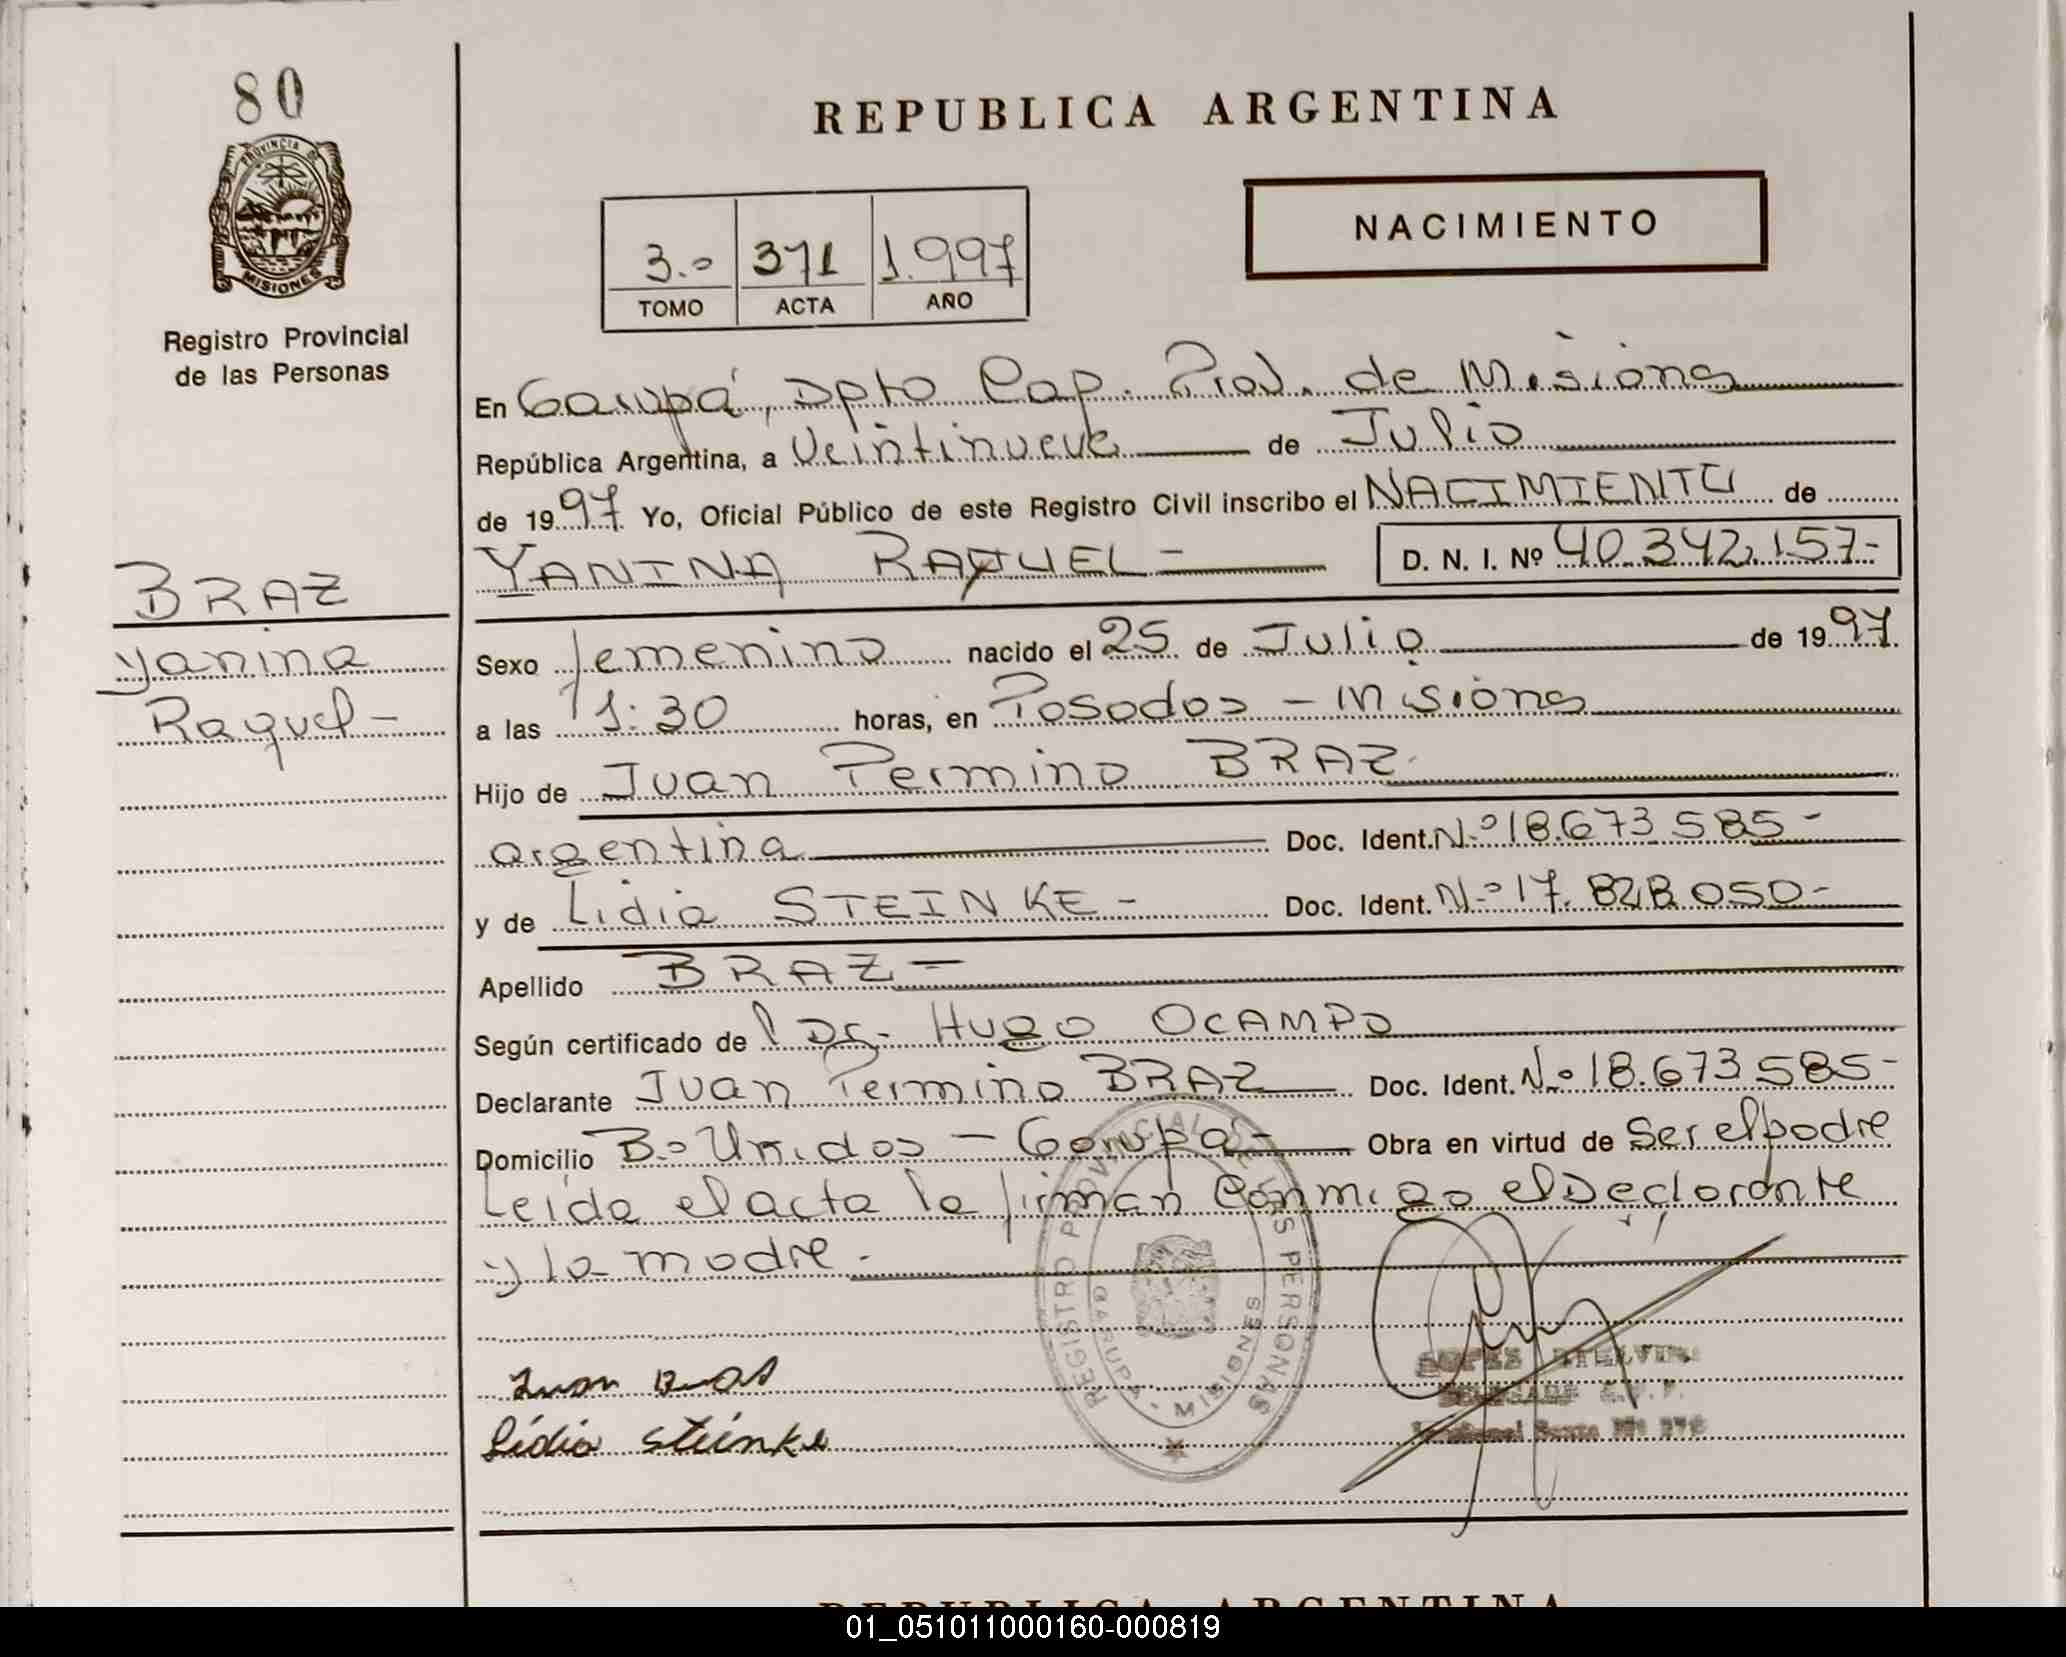 80
PROVINCIA DE
MISIONES
Registro Provincial
de las Personas
REPUBLICA ARGENTINA
NACIMIENTO
3.º 371 1.997
TOMO ACTA AÑO
En Garupá, Dpto Cap. Prov. de Misiones
República Argentina, a Veintinueve de Julio
de 1997 Yo, Oficial Público de este Registro Civil inscribo el NACIMIENTO de
YANINA RAQUEL= D. N. I. Nº 40.342.157-
BRAZ
Yanina
Raquel-
Sexo femenino nacido el 25 de Julio de 1997
a las 11:30 horas, en Posadas - Misiones
Hijo de Juan Permino BRAZ
argentina Doc. Ident. N.º 18.673.585-
y de Lidia STEINKE- Doc. Ident. N.º 17.828.050-
Apellido BRAZ=
Según certificado de Dr. Hugo OCAMPO
Declarante Juan Permino BRAZ Doc. Ident. N.º 18.673.585-
Domicilio B.º Unidos - Garupá- Obra en virtud de Ser el padre
Leida el acta la firman Conmigo el Declarante
y la madre.
REGISTRO PROVINCIAL DE LAS PERSONAS
GARUPA - MISIONES
Juan
Lidia Steinke
REPUBLICA ARGENTINA
01_051011000160-000819